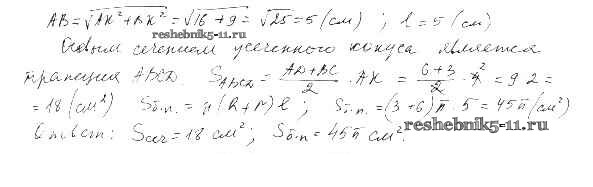 AB = √AK² + BK² = √16 + 9 = √25 = 5 (см) ; l = 5 (см)
reshebnik5-11.ru
Осевым сечением усеченного конуса является
трапеция ABCD. S_ABCD = (AD+BC)/2 · AK = (6+3)/2 · 4² = 9·2 =
= 18 (см²) Sб.п. = π(R+r)l ; Sб.п. = (3+6)π · 5 = 45π (см²)
Ответ: Sсеч = 18 см² ; Sб.п = 45π см².
reshebnik5-11.ru